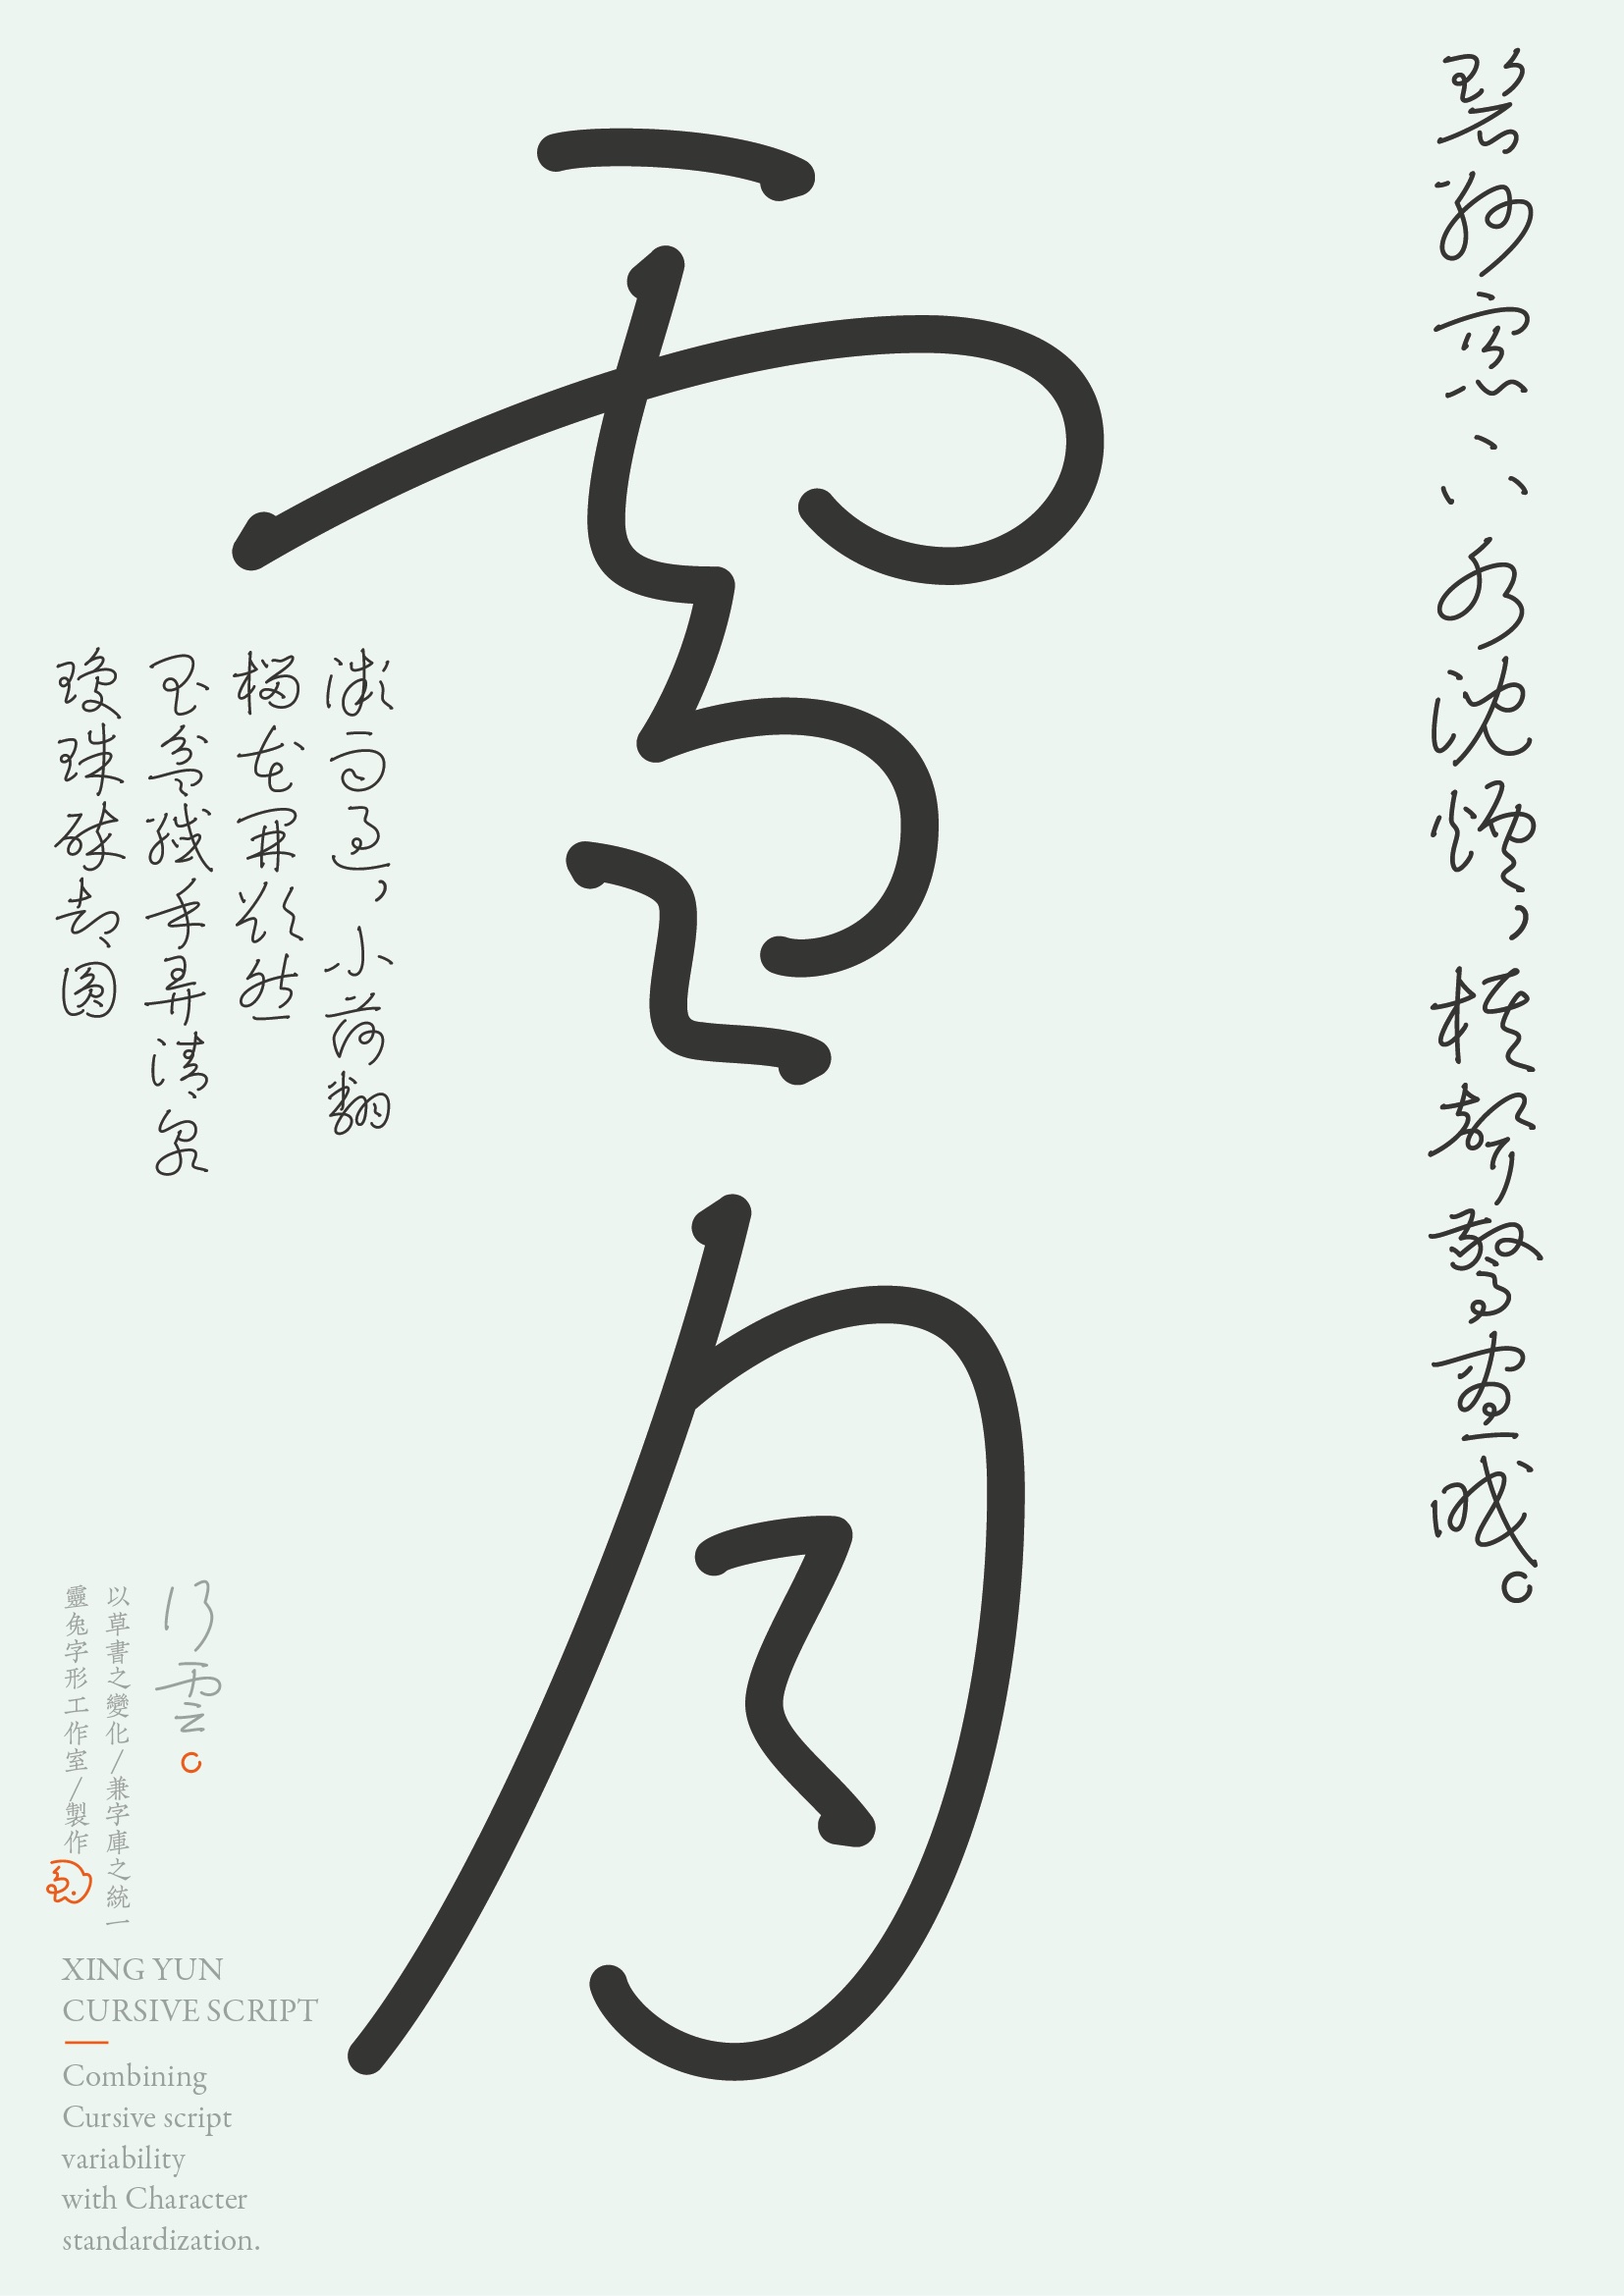 碧紗窗下水沈煙，棋聲驚晝眠。
月
微雨過，小荷翻
榴花開欲然
玉盆纖手弄清泉
瓊珠碎卻圓
行雲。
以草書之變化/兼字庫之統一
靈兔字形工作室/製作
XING YUN
CURSIVE SCRIPT
Combining
Cursive script
variability
with Character
standardization.